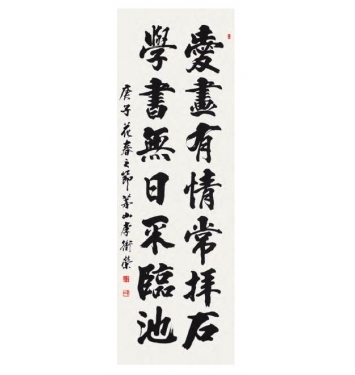 愛畫有情常拜石
學書無日不臨池
庚子花春之節茅山李衡榮